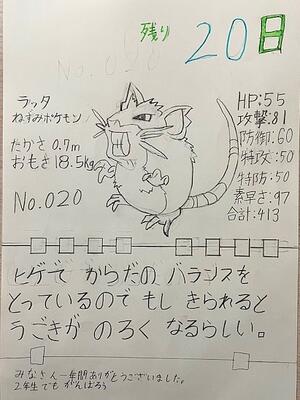 残り 20日
No.020
ラッタ
ねずみポケモン
たかさ 0.7m
おもさ 18.5kg
No.020
HP:55
攻撃:81
防御:60
特攻:50
特防:50
素早さ:97
合計:413
ヒゲで からだの バランスを
とっているので もし きられると
うごきが のろく なるらしい。
みなさん一年間ありがとうございました。
2年生でもがんばろう